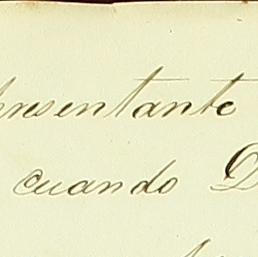 presentante
cuando D